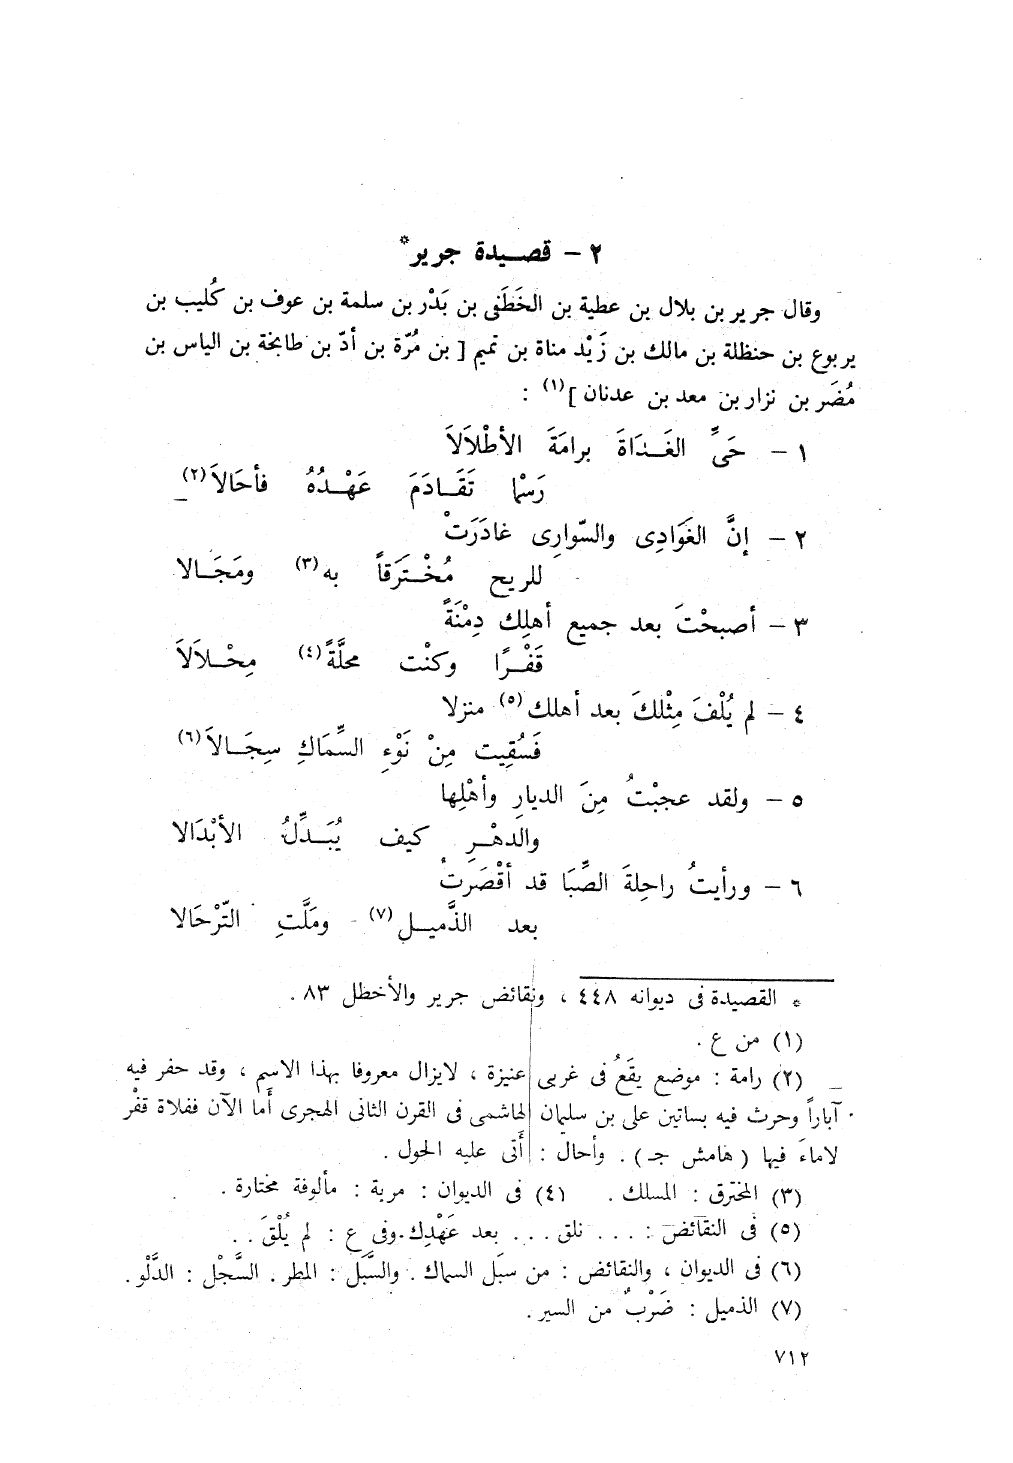 ٢ – قصيدة جرير*
وقال جرير بن بلال بن عطية بن الخَطَفى بن بَدْر بن سلمة بن عوف بن كُليب بن
يربوع بن حنظلة بن مالك بن زَيْد مناة بن تميم [ بن مُرّة بن أدّ بن طابخة بن الياس بن
مُضَر بن نزار بن معد بن عدنان ](١) :
١ – حَىِّ الغَـدَاةَ برامَةَ الأطْلَالَاَ
رَسْمًا تَقَـادَمَ عَهْـدُهُ فأحَالاَ(٢)
٢ – إنَّ الغَوَادِى والسّوارِى غادَرَتْ
للريح مُخْـتَرَقاً به(٣) ومَجَـالا
٣ – أصبحْتَ بعد جميع أهلِك دِمْنَةً
قَفْـرًا وكنْت محلَّةً(٤) مِحْـلاَلَاَ
٤ – لم يُلْفَ مِثْلكَ بعد أهلك(٥) منزلا
فَسُقِيت مِنْ نَوْءِ السِّمَاكِ سِجَـالاَ(٦)
٥ – ولقد عجبْتُ مِنَ الديارِ وأهْلِها
والدهْـرِ كيف يُبَـدِّلُ الأبْدَالا
٦ – ورأيتُ راحِلةَ الصِّبَا قد أقْصَرَتْ
بعد الذَّميـل(٧) ومَلَّتِ التّرْحَالا
* القصيدة فى ديوانه ٤٤٨ ، ونقائض جرير والأخطل ٨٣ .
(١) من ع .
(٢) رامة : موضع يقَعُ فى غربى عنيزة ، لايزال معروفا بهذا الاسم ، وقد حفر فيه
آباراً وحرث فيه بساتين على بن سليمان الهاشمى فى القرن الثانى الهجرى أما الآن ففلاة قفْر
لاماءَ فيها ( هامش جـ ) . وأحال : أَتى عليه الحول .
(٣) المخترق : المسلك . (٤) فى الديوان : مربة : مألوفة مختارة .
(٥) فى النقائض : . . . نلق . . . بعد عَهْدِك.وفى ع : لم يُلْقَ . .
(٦) فى الديوان ، والنقائض : من سبَل السماك . والسَّبَل : المطر . السَّجْل : الدَّلْو .
(٧) الذميل : ضَرْبٌ من السير .
٧١٢